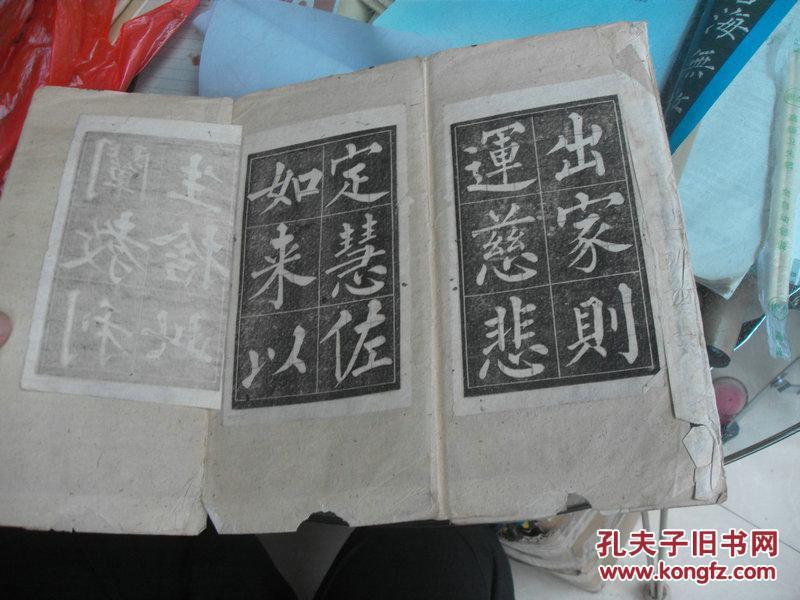 出家則
運慈悲
定慧佐
如来以
闡教利
生捨此
海無
孔夫子旧书网
www.kongfz.com